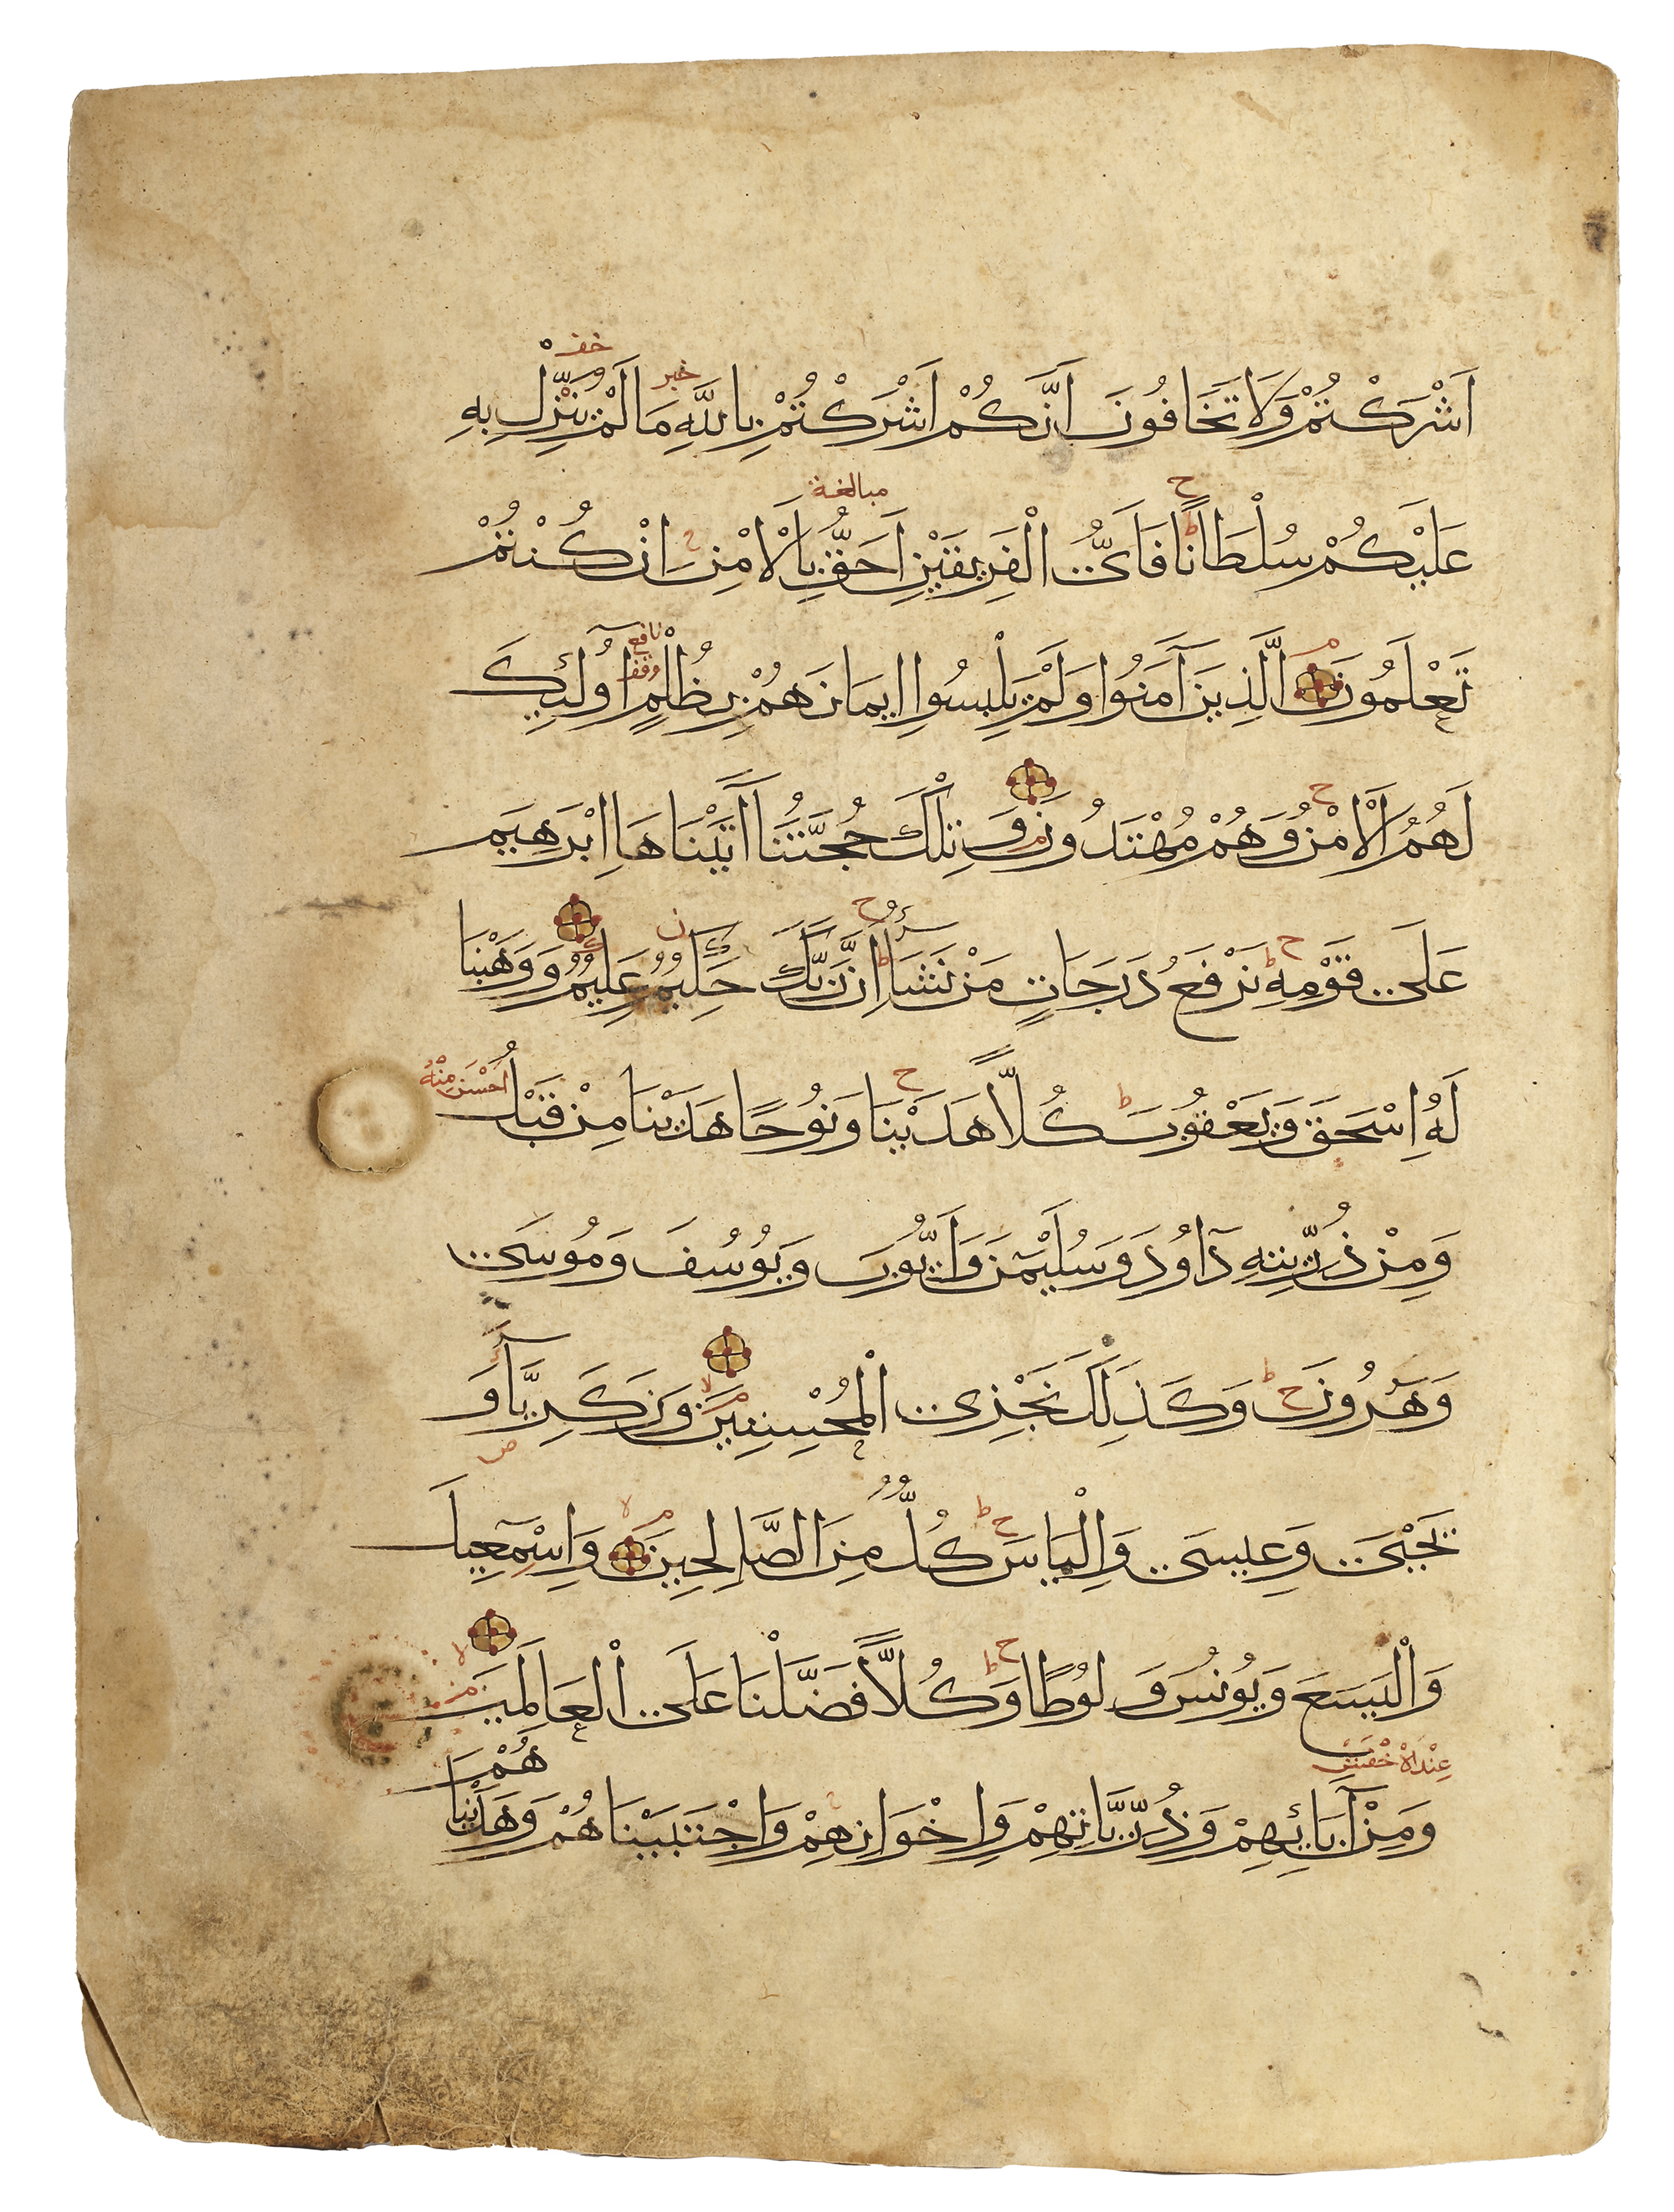 خف
خبر
اَشْرَكْتُمْ وَلَا تَخَافُونَ اَنَّكُمْ اَشْرَكْتُمْ بِاللَّهِ مَا لَمْ يُنَزِّلْ بِهِ
ح مبالغة
عَلَيْكُمْ سُلْطَانًا فَاَيُّ الْفَرِيقَيْنِ اَحَقُّ بِالْاَمْنِ اِنْ كُنْتُمْ
نافع
وقف
تَعْلَمُونَ الَّذِينَ آمَنُوا وَلَمْ يَلْبِسُوا اِيمَانَهُمْ بِظُلْمٍ اُولَئِكَ
لَهُمُ الْاَمْنُ وَهُمْ مُهْتَدُونَ وَتِلْكَ حُجَّتُنَا آتَيْنَاهَا اِبْرَهِيمَ
عَلَى قَوْمِهِ نَرْفَعُ دَرَجَاتٍ مَنْ نَشَاءُ اِنَّ رَبَّكَ حَكِيمٌ عَلِيمٌ وَوَهَبْنَا
لَهُ اِسْحَقَ وَيَعْقُوبَ كُلًّا هَدَيْنَا وَنُوحًا هَدَيْنَا مِنْ قَبْلُ احسن منه
وَمِنْ ذُرِّيَّتِهِ دَاوُدَ وَسُلَيْمَنَ وَاَيُّوبَ وَيُوسُفَ وَمُوسَى
وَهَرُونَ وَكَذَلِكَ نَجْزِي الْمُحْسِنِينَ وَزَكَرِيَّآءَ وَ
يَحْيَى وَعِيسَى وَاِلْيَاسَ كُلٌّ مِنَ الصَّالِحِينَ وَاِسْمَعِيلَ
وَالْيَسَعَ وَيُونُسَ وَلُوطًا وَكُلًّا فَضَّلْنَا عَلَى الْعَالَمِينَ
عند الاخفش
وَمِنْ آبَائِهِمْ وَذُرِّيَّاتِهِمْ وَاِخْوَانِهِمْ وَاجْتَبَيْنَاهُمْ وَهَدَيْنَاهُمْ